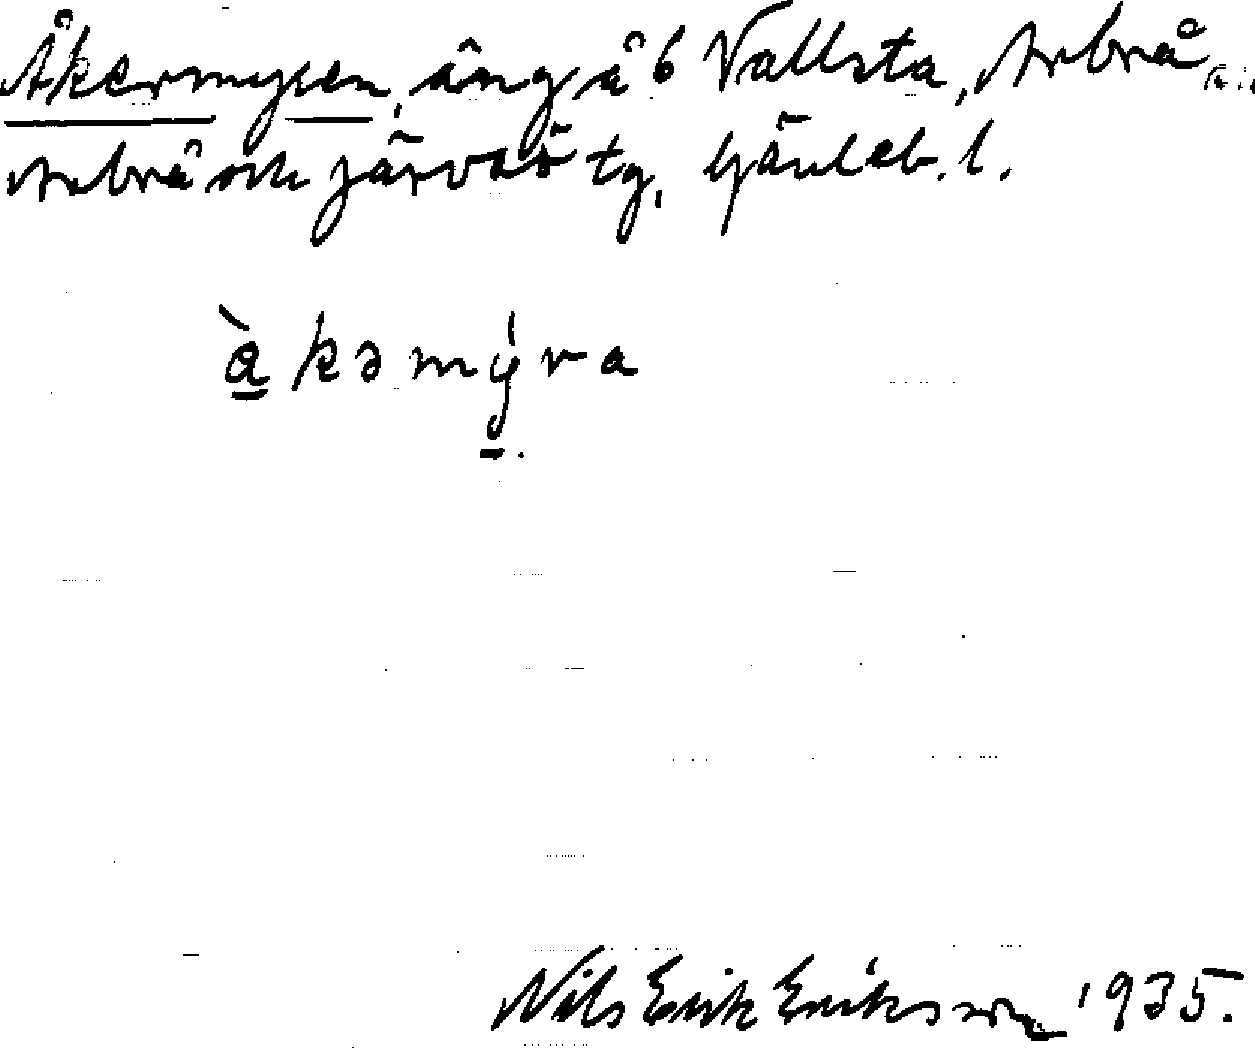 Åkermyren, äng å 6 Vallsta, Arbrå
Arbrå och Järvsö tg, Gävleb. l.
àkəmýra
Nils Erik Eriksson 1935.